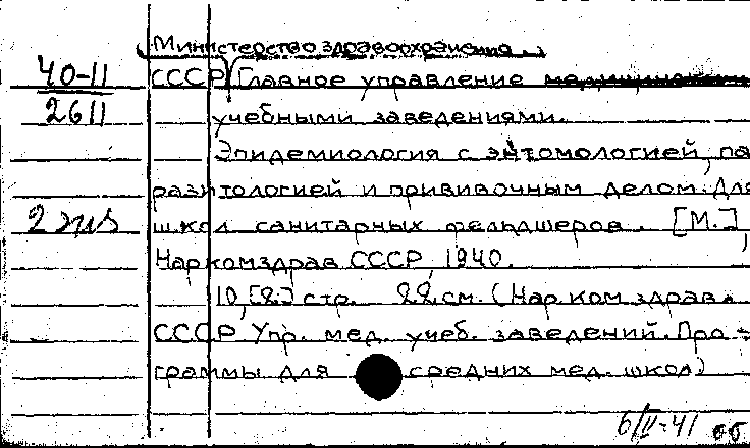 Министерство здравоохранения.
40-11 СССР Главное управление
2611 учебными заведениями.
Эпидемиология с энтомологией, па
разитологией и прививочным делом. Для
2 экз школ санитарных фельдшеров. [М.],
Наркомздрав СССР, 1940.
10, [2] стр. 22 см. (Нар. ком. здрав.
СССР. Упр. мед. учеб. заведений. Про-
граммы для средних мед. школ)
6/II-41